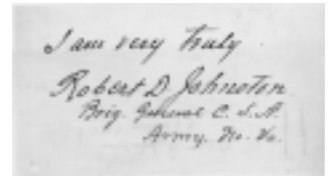 I am very truly
Robert D. Johnston
Brig. General C. S. A.
Army. No. Va.